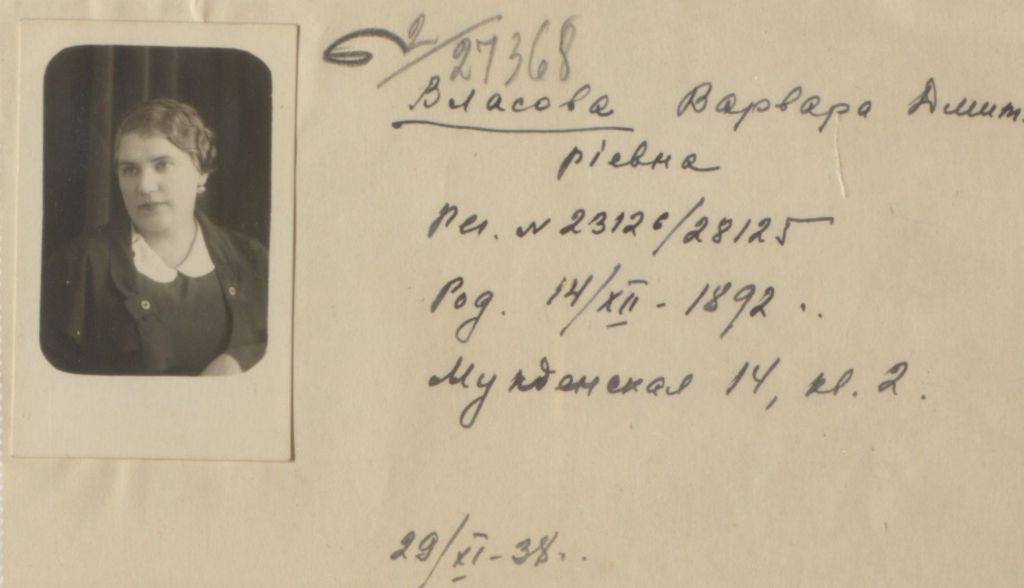 2/27368
Власова Варвара Дмит.
ріевна
Рег. N 23126/28125
Род. 14/XII - 1892 ..
Мукденская 14, кв. 2.
29/XI - 38..